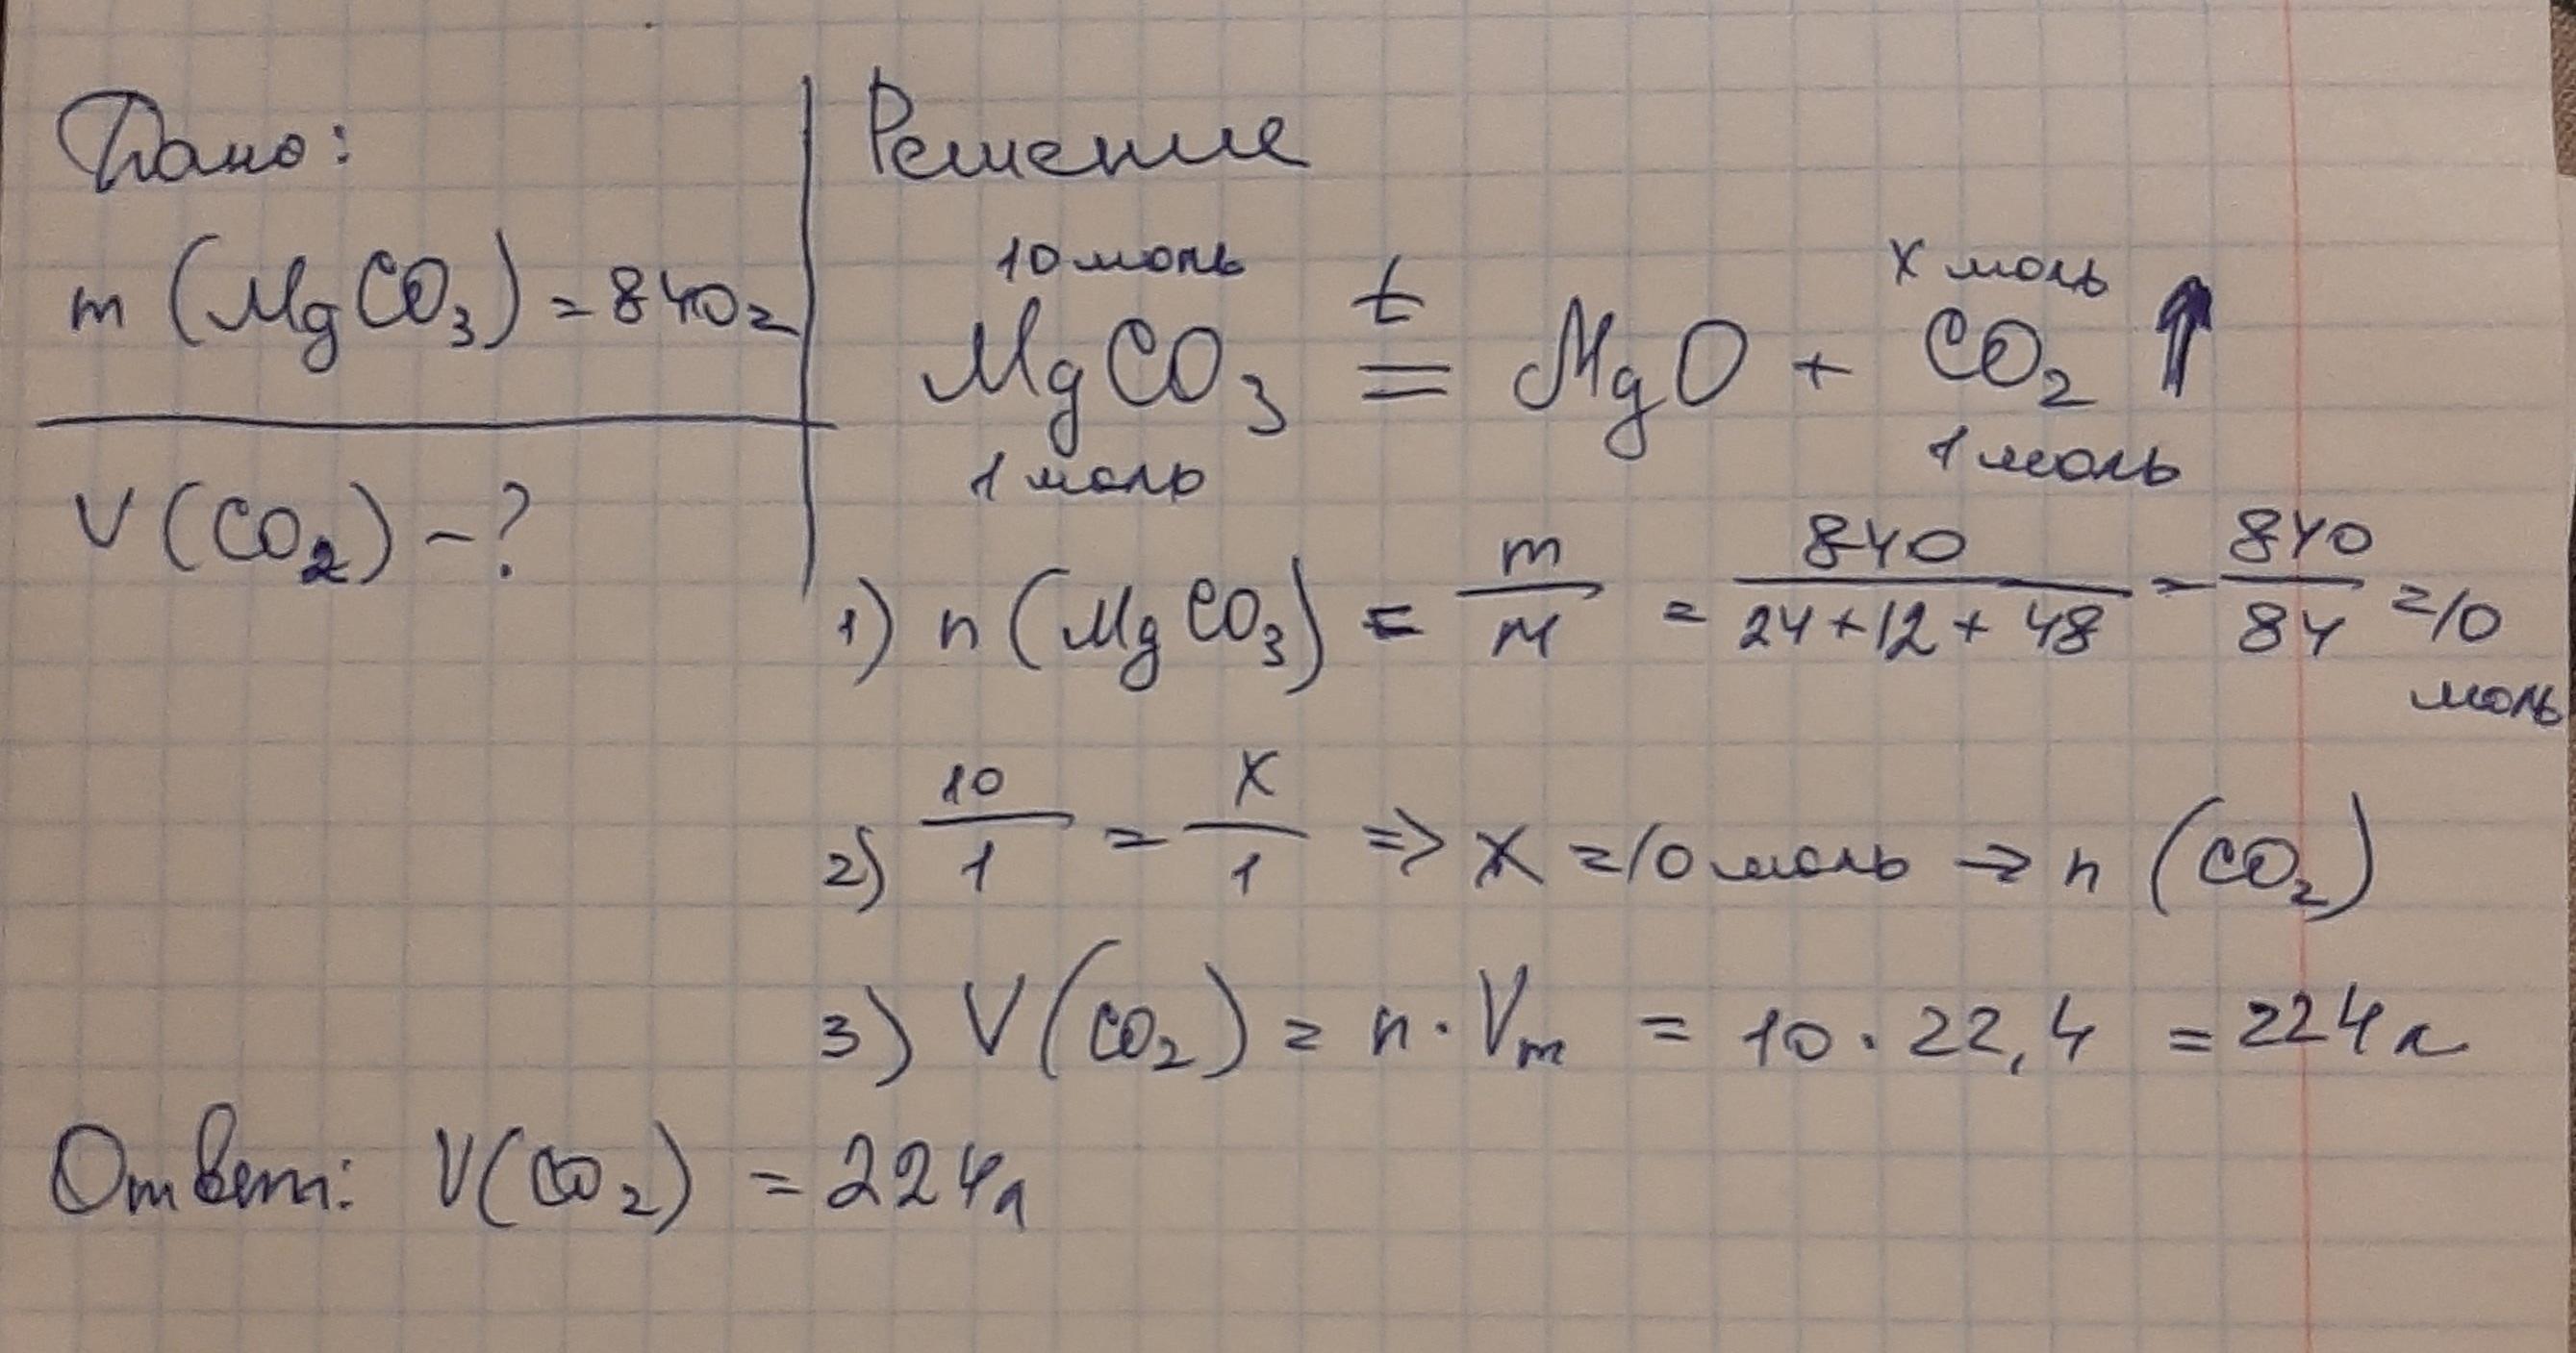 Дано:
m (MgCO₃) = 840г
V (CO₂) - ?
Решение
10 моль x моль
MgCO₃ t = MgO + CO₂ ↑
1 моль 1 моль
1) n (MgCO₃) = m/M = 840/(24+12+48) = 840/84 = 10 моль
2) 10/1 = x/1 => x = 10 моль → n (CO₂)
3) V (CO₂) = n · Vm = 10 · 22,4 = 224 л
Ответ: V(CO₂) = 224л